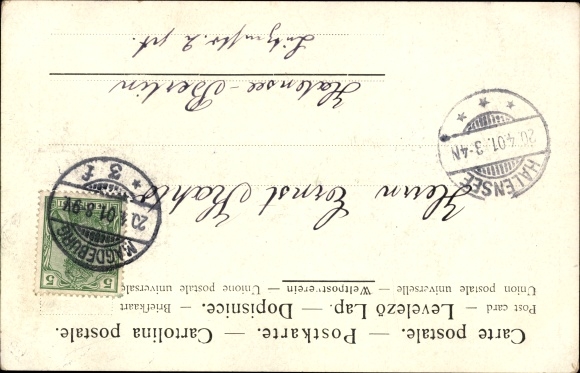 Carte postale. — Postkarte. — Cartolina postale.
Post card — Levelező Lap. — Dopisnice. — Briefkaart
Union postale universelle — Weltpostverein — Unione postale universale
5
5
MAGDEBURG
20.4.01.8-9V
* 3 f
Herrn Ernst
HALENSEE
20.4.01.3-4N
* * *
Halensee-Berlin
2 pt.